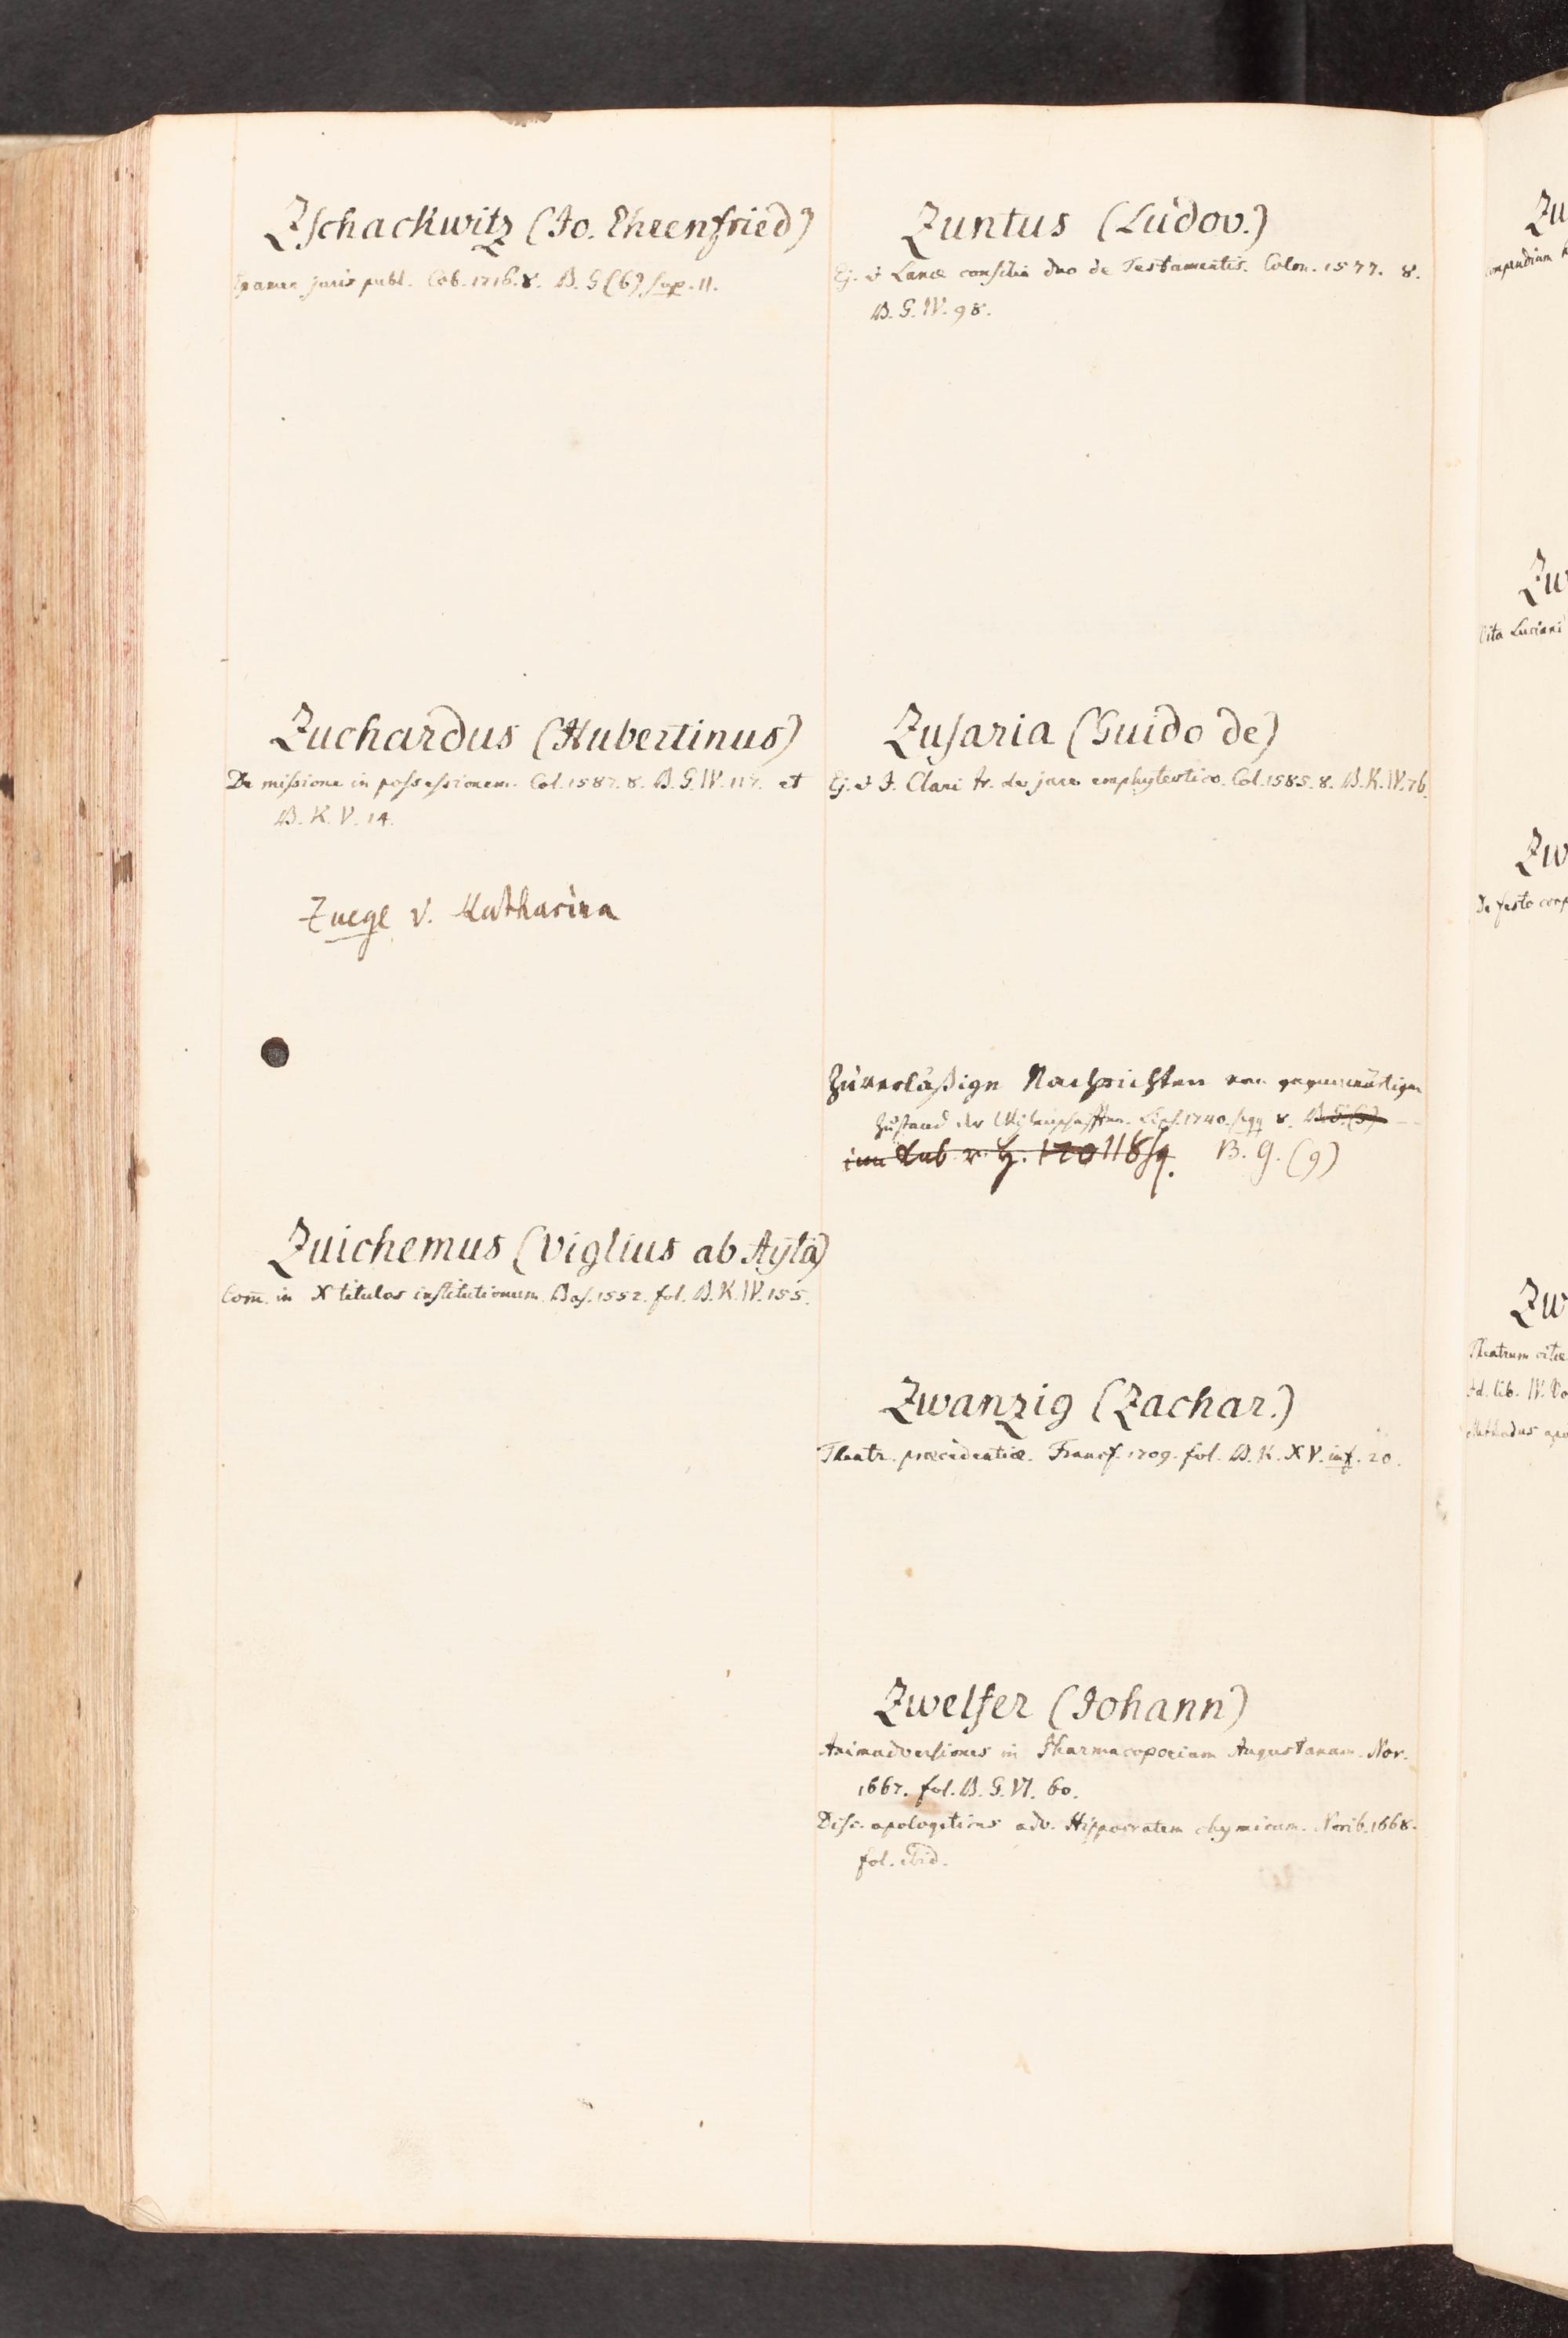 Zschackwitz (Jo. Ehrenfried)
Examen juris publ. Cob. 1716. 8. B. G (6) sup. 11.
Zuchardus (Hubertinus)
De missione in possessionem. Col. 1587. 8. B. G. IV. 117. et
B. K. V. 14.
Zuege v. Katharina
Zuichemus (Viglius ab Aÿta)
Com̅. in X titulos institutionum. Bas. 1552. fol. B. K. IV. 155.
Zuntus (Ludov.)
Ej. & Lanæ consilia duo de Testamentis. Colon. 1577. 8.
B. G. IV. 98.
Zusaria (Guido de)
Ej. & J. Clari tr. de jure emphyteotico. Col. 1585. 8. B. K. IV. 76.
Zuverläßige Nachrichten von gegenwärtigen
Zustand der Wißenschafften. Lips. 1740. sqq 8. B. G. (9)
B. G. (9)
Zwanzig (Zachar.)
Theatr. præcedentiæ. Francf. 1709. fol. B. K. XV. inf. 20.
Zwelfer (Johann)
Animadversiones in Pharmacopoeiam Augustanam. Nor.
1667. fol. B. G. VI. 60.
Disc. apologeticus adv. Hippocratem chymicum. Norib. 1668.
fol. ibid.
Zu
compendium
Zw
Vita Luciani
Zw
De festo corp
Zw
Theatrum vitæ
Ad. lib. IV.
Methodus apo